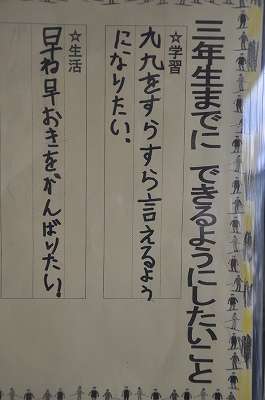 三年生までに できるようにしたいこと
☆学習
九九をすらすら言えるよう
になりたい。
☆生活
早ね早おきをがんばりたい!